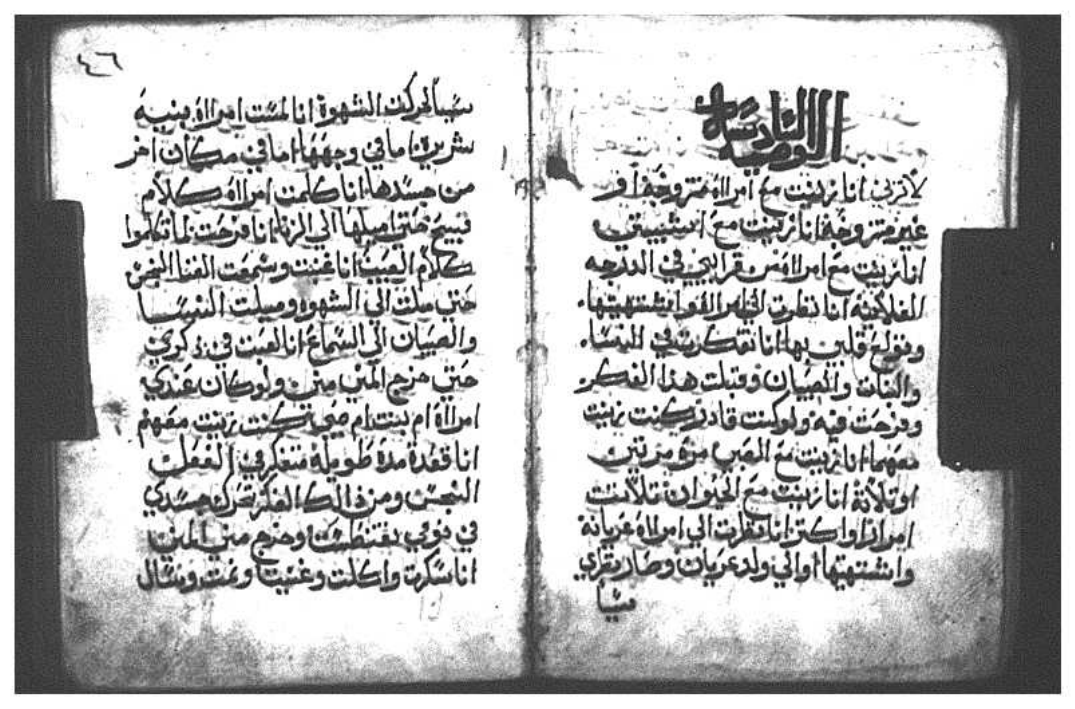 الوصية السادسة
لا تزني انا زنيت مع امراة متزوجة او في
غير متزوجة انا زنيت مع اشبيني
انا زنيت مع امراة من قرايبي في الدرجه
الثلاثة انا نظرت الي امراة واشتهيتها
وولع قلبي بها انا تفكرت في النسا
والبنات والصبيان وقبلت هذا الفكر
وفرحت فيه ولو كنت قادر كنت زنيت
معهما انا زنيت مع الصبي مرة مرتين
او ثلاثة انا زنيت مع الحيوان ثلاثت
امرارا واكتر انا نظرت الي امراة عريانة
واشتهيتها اوالي ولد عريان وصار بقلبي
شيا
٤٦
شيا لحركت الشهوة انا لمست امراة بنية
شريرة اما في وجهها اما في مكان اخر
من جسدها انا كلمت امراة كلام
قبيح حتي اميلها الي الزنا انا فرحت لما تكلموا
كلام العيب انا غنيت وسمعت الغنا النجس
حتي ميلت الي الشهوه وميلت النسا
والصبيان الي السماع انا لعبت في ذكري
حتي خرج المني مني ولو كان عندي
امراة ام بنت ام صبي كنت زنيت معهم
انا قعدة مدة طويلة متفكر في الفعل
النجس ومن ذالك الفكر تحرك جسدي
في نومي وخرج مني المني
انا سكرت واكلت وغنيت ونمت وسال